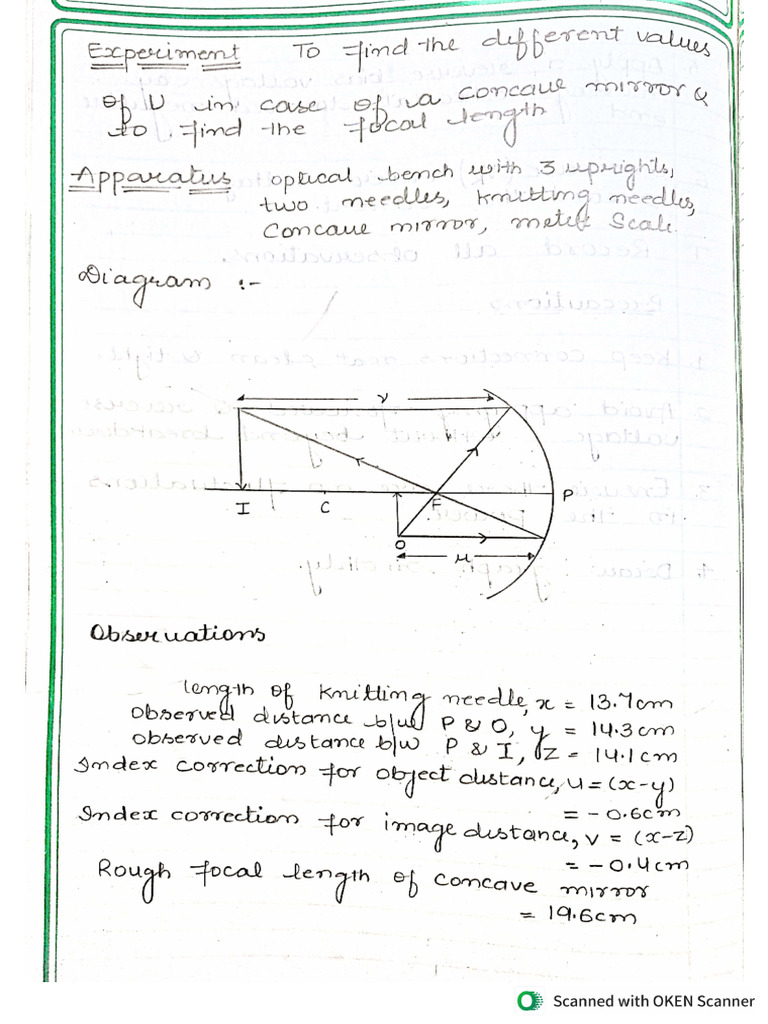 Experiment To find the different values
of v in case of a concave mirror &
to find the focal length
Apparatus optical bench with 3 uprights,
two needles, knitting needles,
concave mirror, meter Scale.
Diagram :-
v
I C F P
O
u
Observations
length of knitting needle, x = 13.7cm
Observed distance b/w P & O, y = 14.3cm
observed distance b/w P & I, z = 14.1cm
Index correction for object distance, u = (x-y)
= -0.6cm
Index correction for image distance, v = (x-z)
= -0.4cm
Rough focal length of concave mirror
= 19.6cm
Scanned with OKEN Scanner